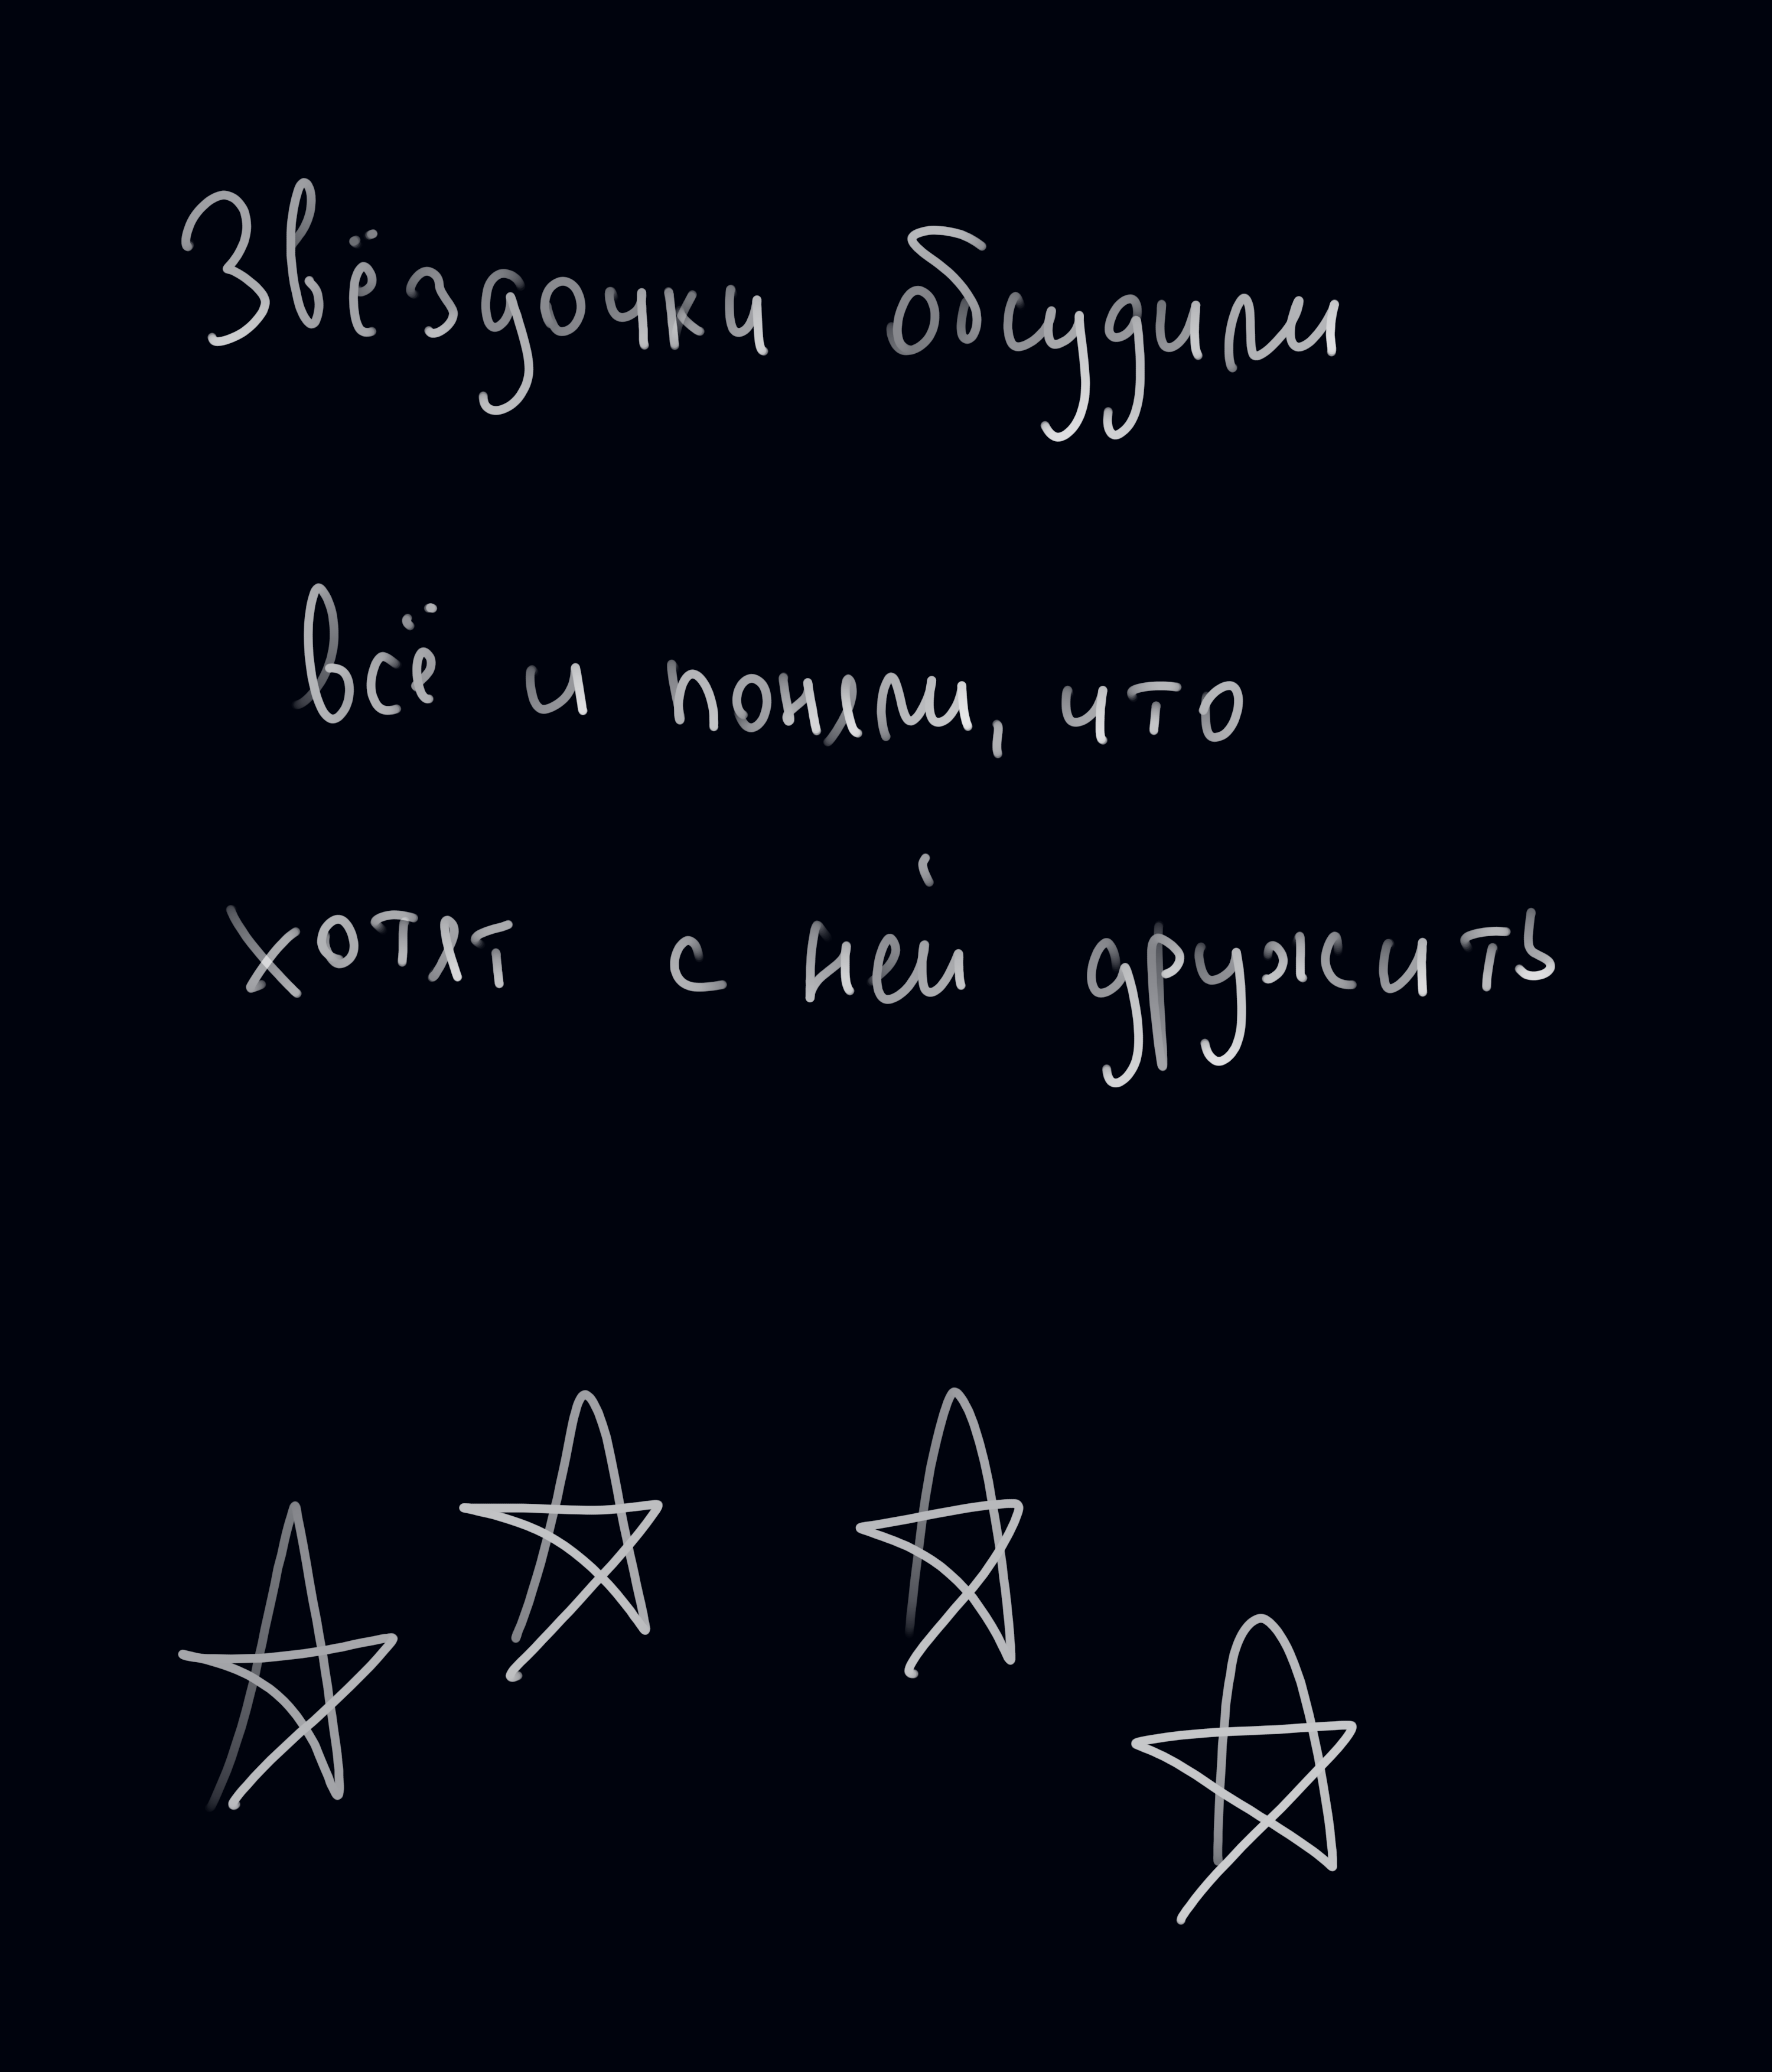 Звёздочки обсудили
всё и поняли, что
хотят с ней дружить